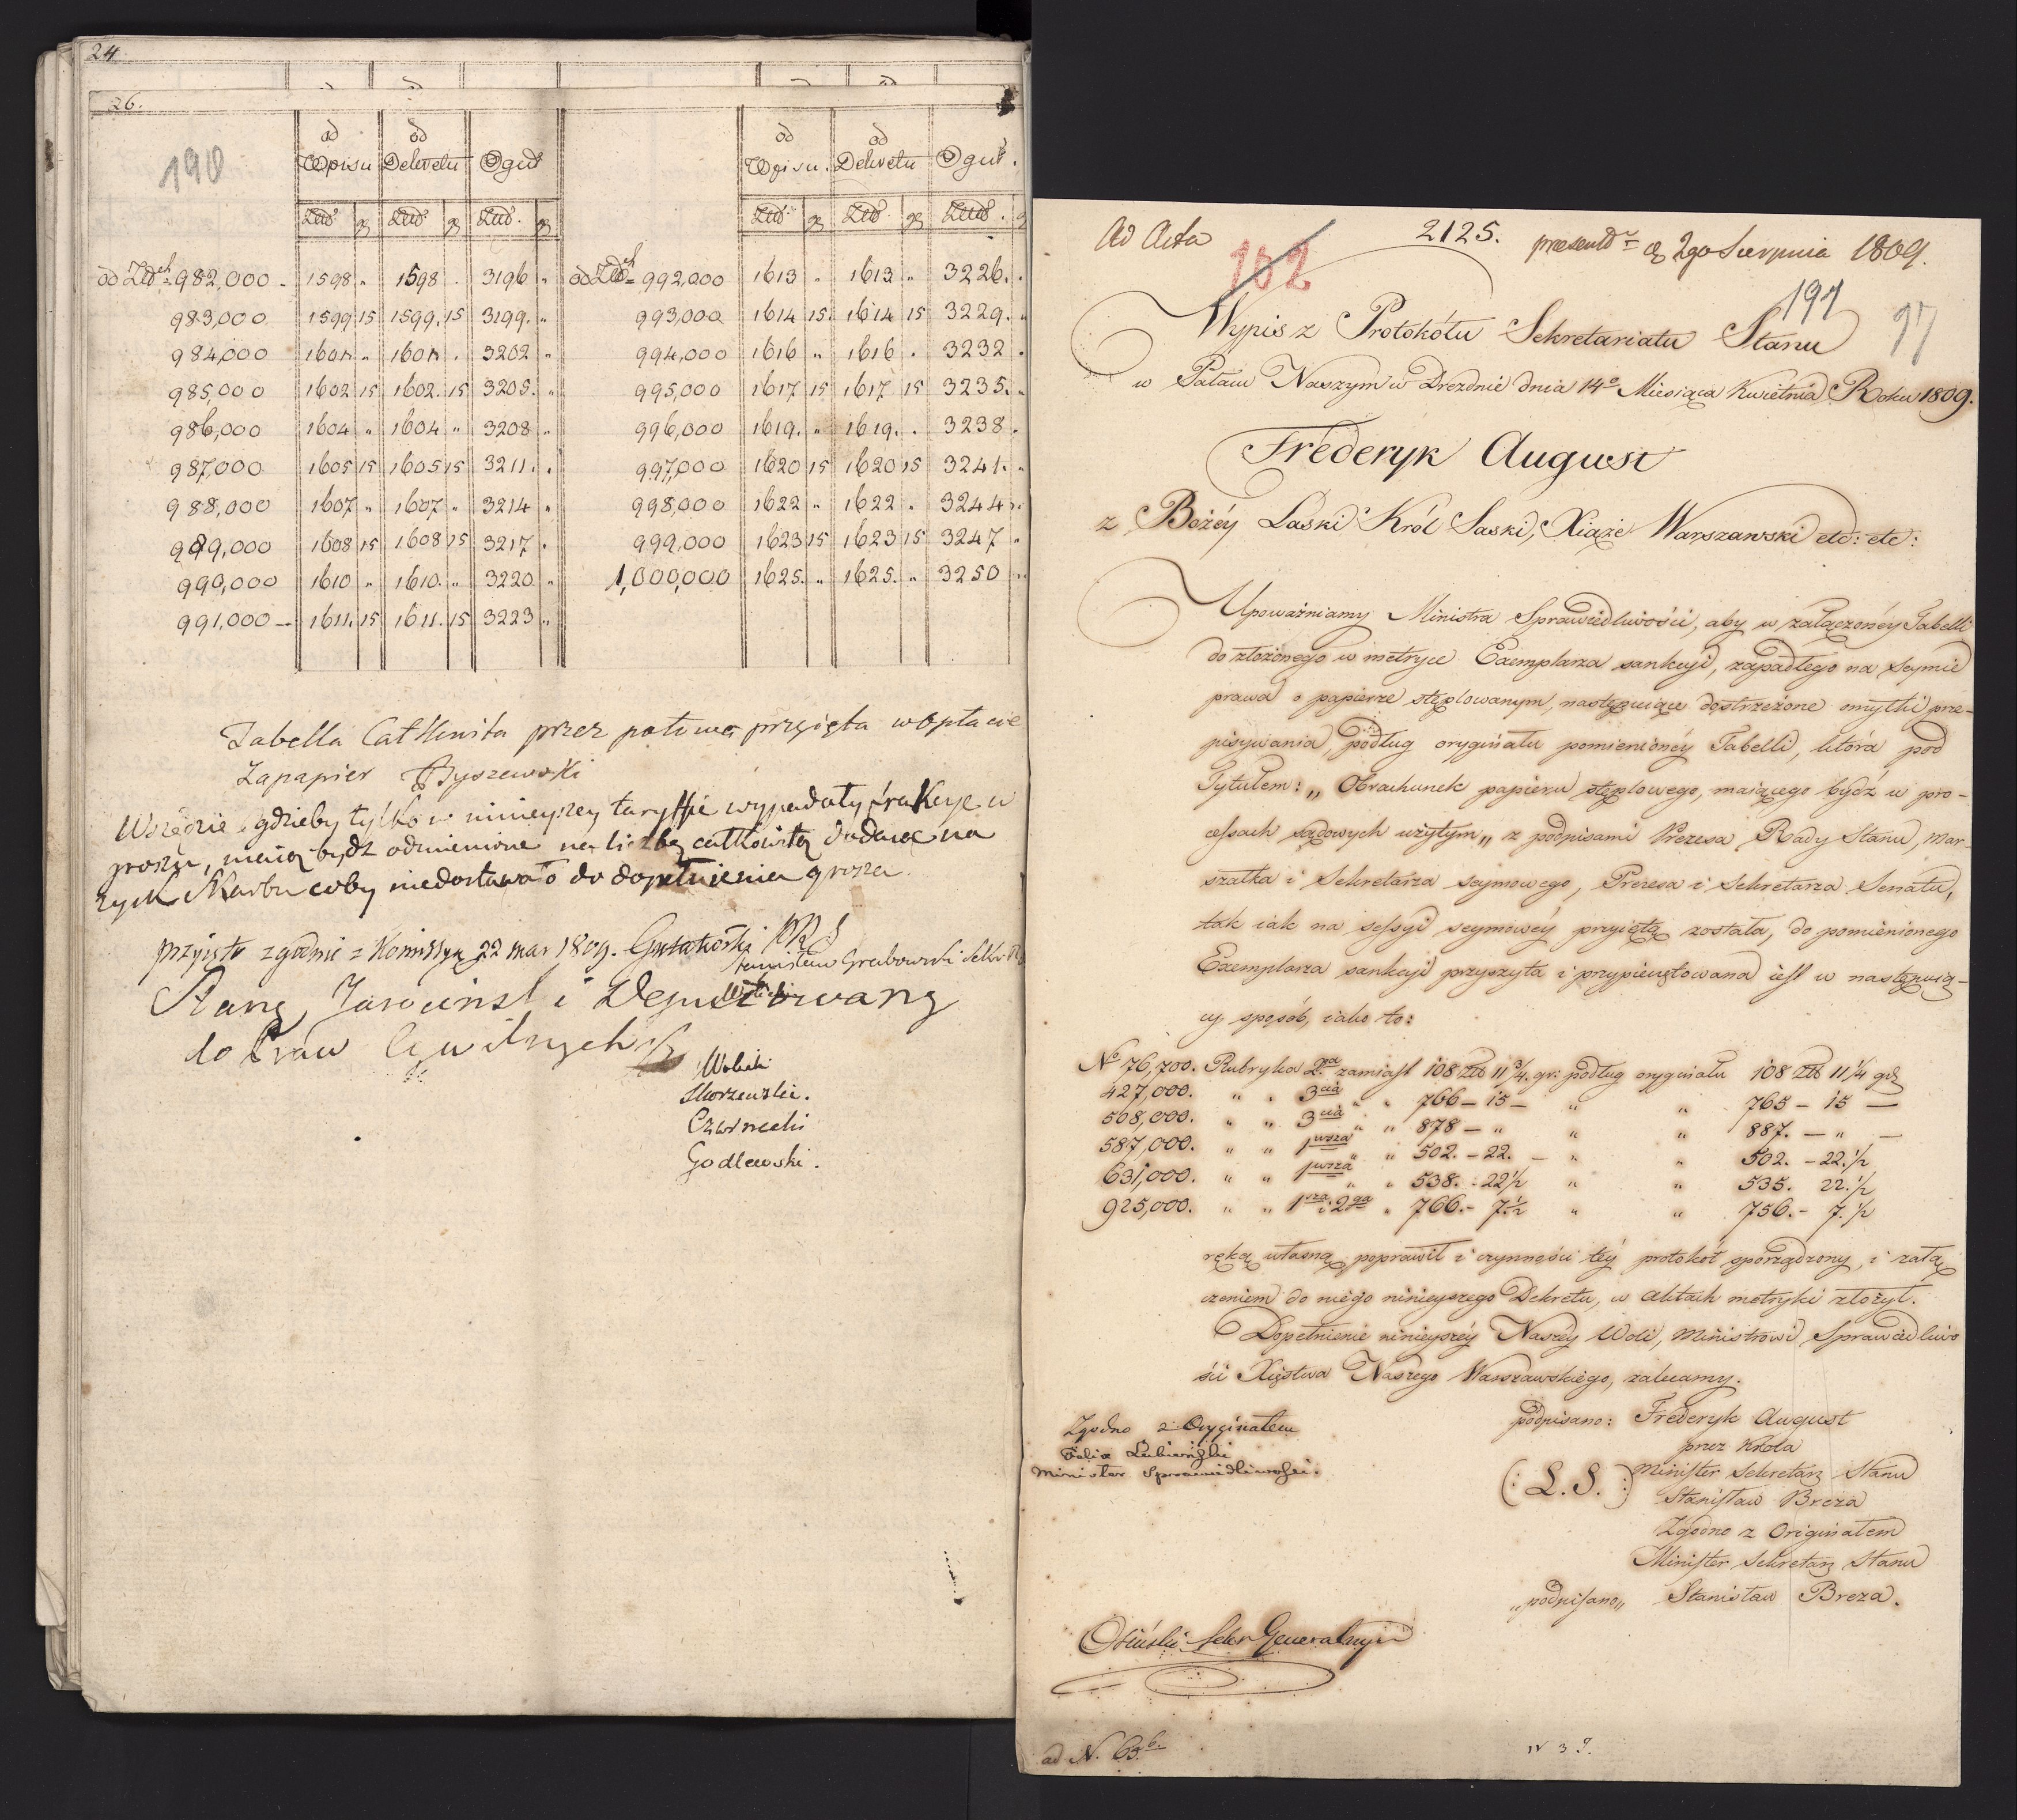 24
26.
190
od Wpisu od Dekretu Oguł od Wpisu. od Dekretu Oguł.
Złłt gr Złłt gr Złłt. gr Złłt gr Złłt gr Złłt. g
od Złch 982,000 - 1598 „ 1598 . 3196 „ od Złch 992,000 1613 „ 1613 „ 3226. „
983,000 1599 15 1599. 15 3199. „ 993,000 1614 15. 1614 15 3229. „
984,000 1601 „ 1601 . 3202 „ 994,000 1616 „ 1616 . 3232 .
985,000 1602 15 1602. 15 3205. „ 995,000 1617 15 1617 15 3235. „
986,000 1604 „ 1604 „ 3208 „ 996,000 1619. „ 1619. . 3238 .
987,000 1605 15 1605 15 3211. . 997,000 1620 15 1620 15 3241. „
988,000 1607 „ 1607 „ 3214 „ 998,000 1622 „ 1622 . 3244 „
989,000 1608 15 1608 15 3217 . 999,000 1623 15 1623 15 3247 „
990,000 1610 „ 1610. „ 3220 „ 1,000,000 1625. „ 1625. „ 3250 „
991,000 - 1611. 15 1611. 15 3223 „
Tabella Całkowita przez połowę przyięta w opłacie
Za papier Byszewski
Wszędzie gdzieby tylko w ninieyszey taryffie wypadały frakcye w
groszu, maią bydź odmienione na liczbę całkowitą dodaiąc na
zysk Skarbu coby niedostawało do dopełnienia grosza
przyięto zgodnie z Kommissyą 22 mar 1809. Gutakowski PRS
Stanisław Grabowski Sekr. R
Xawery Jarociński Deputowany
do Praw Cywilnych
Wolicki
Skorzewski.
Czarnecki
Godlewski.
Ad Acta 2125. praesentt d 2go Sierpnia 1809.
102
191
97
Wypis z Protokółu Sekretariatu Stanu
w Pałacu Naszym w Dreznie dnia 14o Miesiąca Kwietnia Roku 1809.
Frederyk August
z Bożéy Łaski Król Saski, Xiąże Warszawski etc: etc:
Upoważniamy Ministra Sprawiedliwości, aby w załączonéy Tabelli
do złożonego w metryce Exemplarza sankcyi, zapadłego na seymie
prawa o papierze stęplowanym, następuiące dostrzeżone omyłki prze-
pisywania, podług oryginału pomienionéy Tabelli, która pod
Tytułem: „ Obrachunek papieru stęplowego, maiącego bydź w pro-
cessach sądowych użytym „ z podpisami Prezesa Rady Stanu, Mar-
szałka i Sekretarza seymowego, Prezesa i Sekretarza Senatu,
tak iak na sessyi seymowéy przyiętą została, do pomienionego
Exemplarza sankcyi przyszyta i przypieczętowana iest w następuią-
cy sposób, iako to:
No 76,700. Rubryka 2ga zamiast 108 Złł 11 3/4. gr: podług oryginału 108 Złł 11 1/4 gr
427,000. „ „ 3cia „ „ 766 - 15 - „ „ 765 - 15 -
508,000. „ „ 3cia „ „ 878 - „ „ „ 887. - „ -
587,000. „ „ 1wsza „ „ 502. - 22. - „ „ 502. - 22. 1/2
631,000. „ „ 1wsza „ „ 538. - 22 1/2 „ „ 535. 22. 1/2
925,000. „ „ 1sza i 2ga „ 766. - 7. 1/2 „ „ 756. - 7. 1/2
ręką własną poprawił i czynności téy protokół sporządzony, i załą
czeniem do niego ninieyszego Dekretu, w aktach metryki złożył.
Dopełnienie ninieyszéy Naszéy Woli, Ministrowi Sprawiedliwo
ści Xięstwa Naszego Warszawskiego, zalecamy.
podpisano: Frederyk August
przez Króla
Minister Sekretarz Stanu
(: L. S. :) Stanisław Breza
Zgodno z Originałem
Minister Sekretarz Stanu
„podpisano„ Stanisław Breza.
Zgodno z Oryginałem
Felix Łubieński
Minister Sprawiedliwości.
Osiński Sekr Generalny
ad N. 63 b.
N 39.